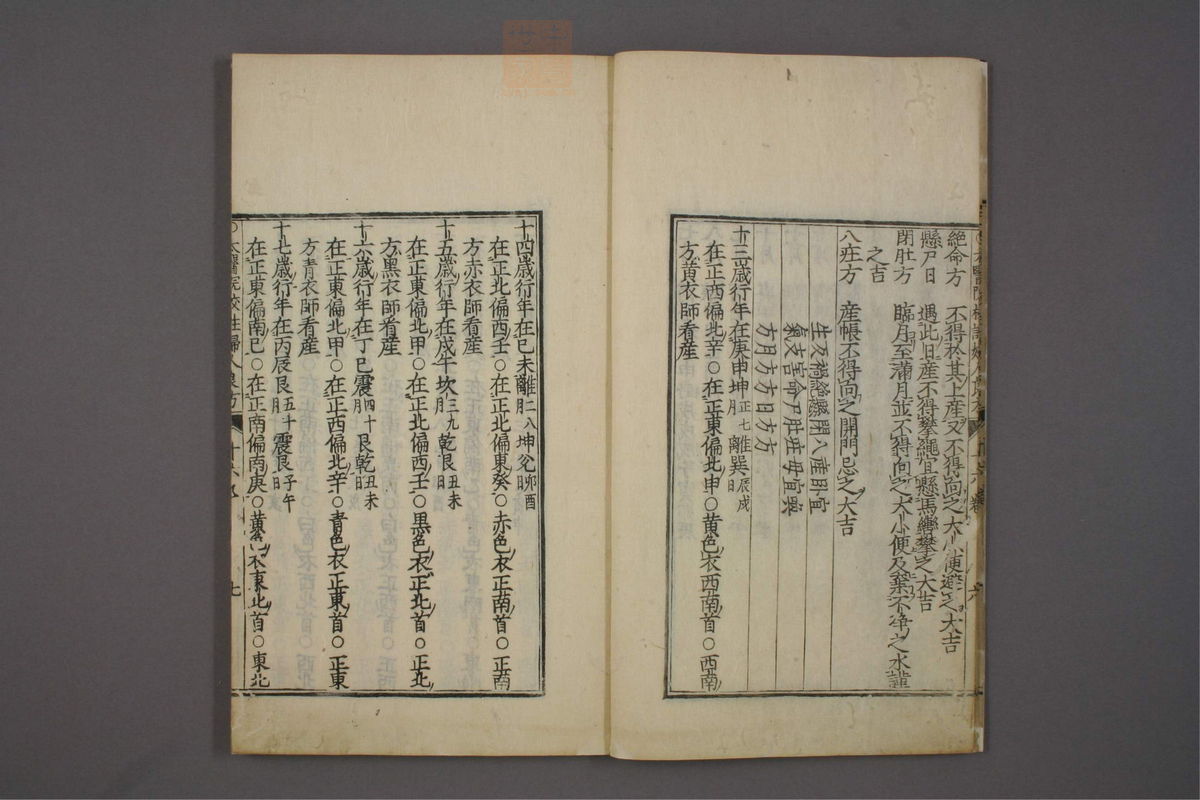 絶命方　不得於其上産又不得向之大小便避之大吉
懸尸日　遇此日産不得攀繩宜懸馬轡攀之大吉
閉肚方　臨月至滿月並不得向之大小便及棄不淨之水謹
之吉
八疰方　産帳不得向之開門忌之大吉
生反禍絶懸閉八産卧宜
氣支害命尸肚疰毋宜與
方月方方日方方
十三歳行年在庚申坤正七月離巽辰戌日
在正西偏北辛○在正東偏北申○黄色衣西南首○西南
方黄衣師看産
十四歳行年在已未離二八月坤兌卯酉日
在正北偏西壬○在正北偏東癸○赤色衣正南首○正南
方赤衣師看産
十五歳行年在戊午坎三九月乾艮丑未日
在正東偏北甲○在正北偏西壬○黒色衣正北首○正北
方黒衣師看産
十六歳行年在丁巳震四十月艮乾丑未日
在正東偏北甲○在正西偏北辛○青色衣正東首○正東
方青衣師看産
十七歳行年在丙辰艮五十一月震艮子午日
在正東偏南巳○在正南偏南庚○黄色衣東北首○東北
○太醫院校註婦人良方　十六卷　七